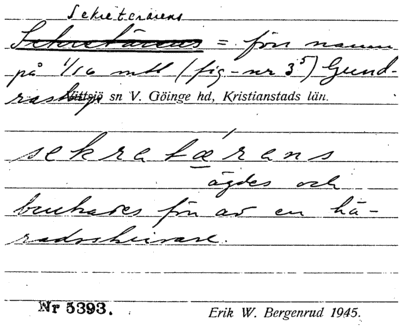 Sekreterarens
Sekretärens = förr namn
på 1/16 mtl (fig-nr 3⁵) Gund-
rastorp Vittsjö sn V. Göinge hd, Kristianstads län.
sekratǽrans
ägdes och
brukades förr av en hä-
radsskrivare.
Nr 5393. Erik W. Bergenrud 1945.